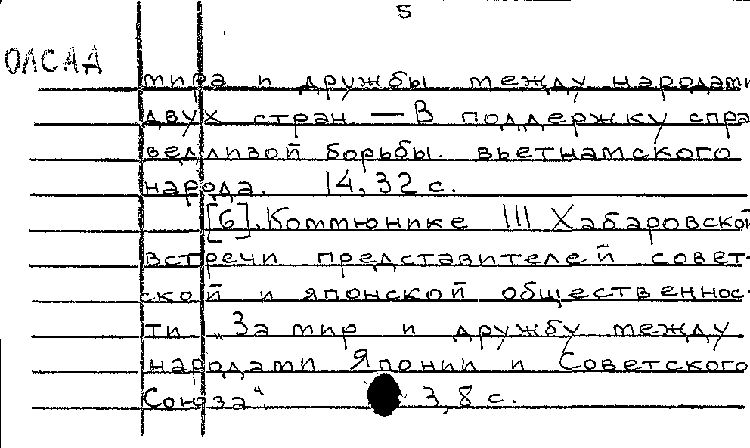 5
ОЛСАА
мира и дружбы между народами
двух стран. — В поддержку спра
ведливой борьбы. вьетнамского
народа. 14,32 с.
[6]. Коммюнике III Хабаровской
встречи представителей совет-
ской и японской общественнос-
ти „За мир и дружбу между
народами Японии и Советского
Союза“ 3,8 с.